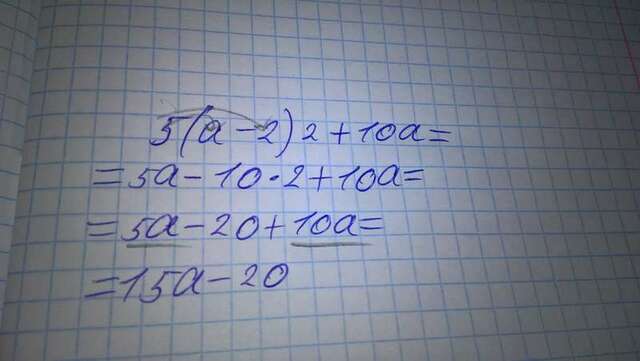 5(a - 2)2 + 10a =
= 5a - 10 · 2 + 10a =
= 5a - 20 + 10a =
= 15a - 20